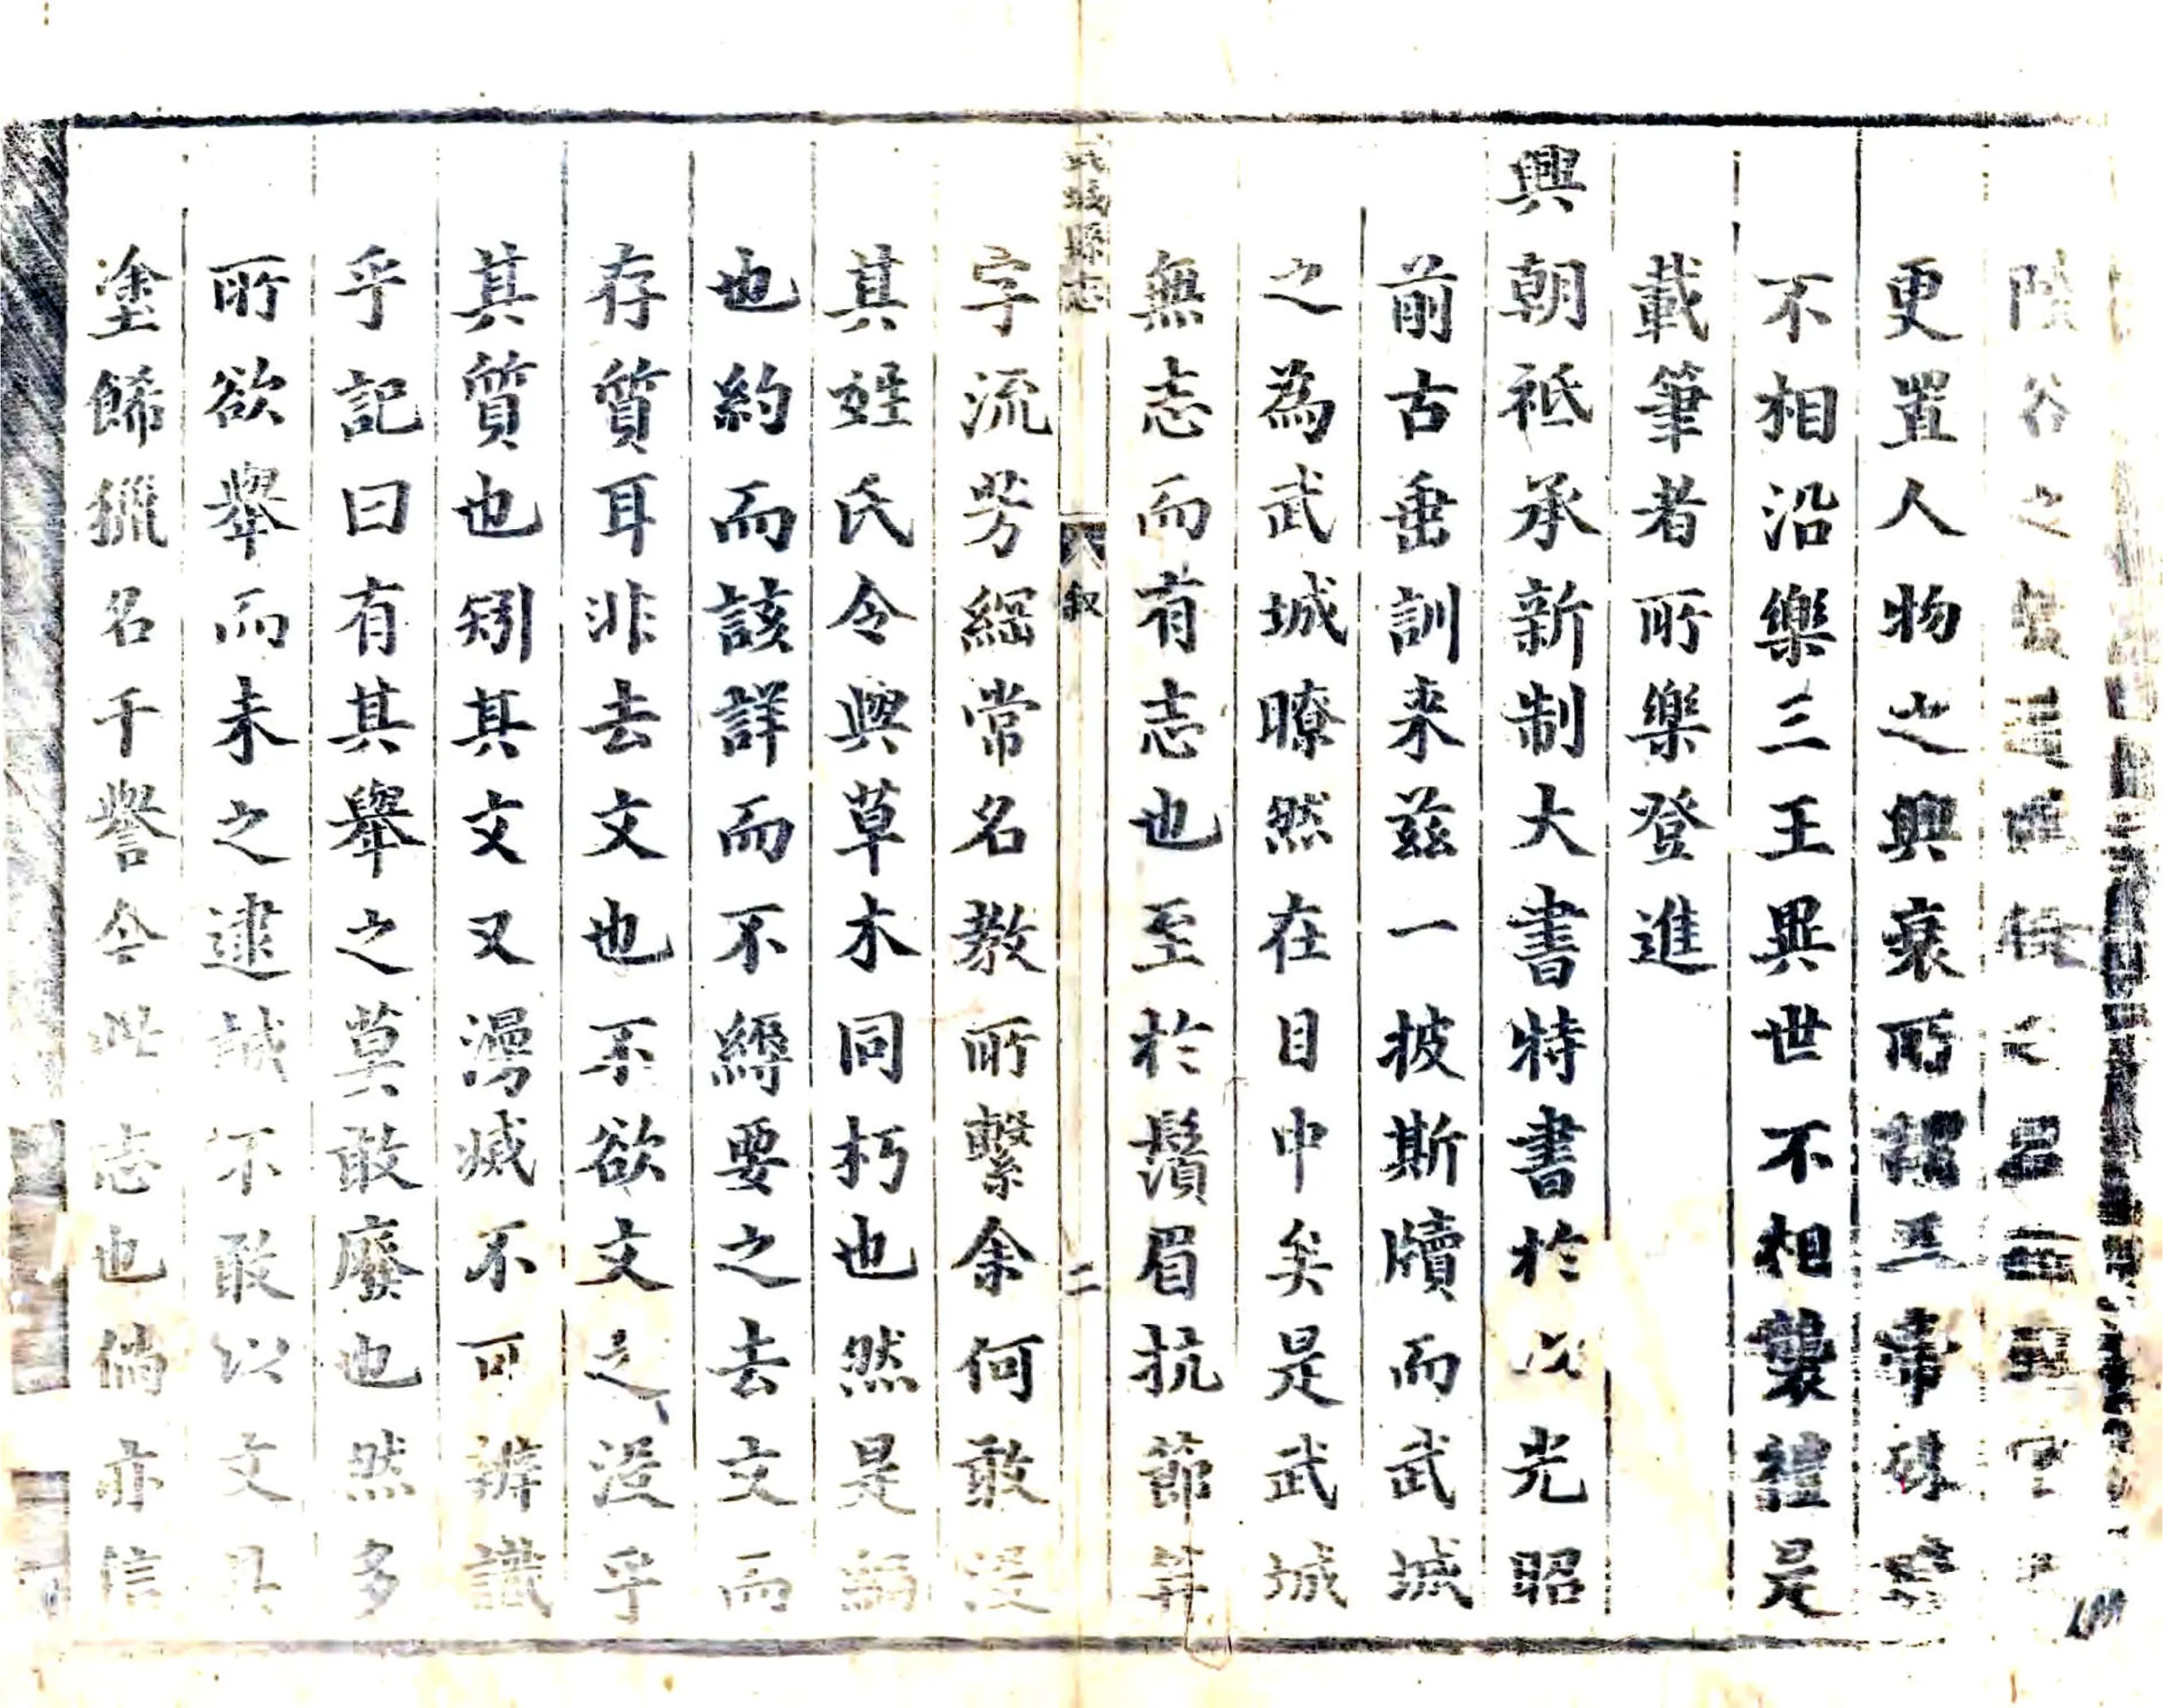 陵谷之變遷之
更置人物之興衰所謂五帝殊
不相沿樂三王異世不相襲禮是
載筆者所樂登進
興朝祗承新制大書特書於以光昭
前古垂訓来茲一披斯牘而武城
之為武城瞭然在目中矣是武城
無志而有志也至於鬚眉抗節笄
武城縣志
叙
二
字流芳綱常名教所繫余何敢沒
其姓氏令與草木同朽也然是編
也約而該詳而不縟要之去文而
存質耳非去文也不欲文之沒乎
其質也矧其文又漫滅不可辨識
乎記曰有其舉之莫敢廢也然多
所欲舉而未之逮誠不敢以文具
塗餙獵名干譽今此志也倘亦信